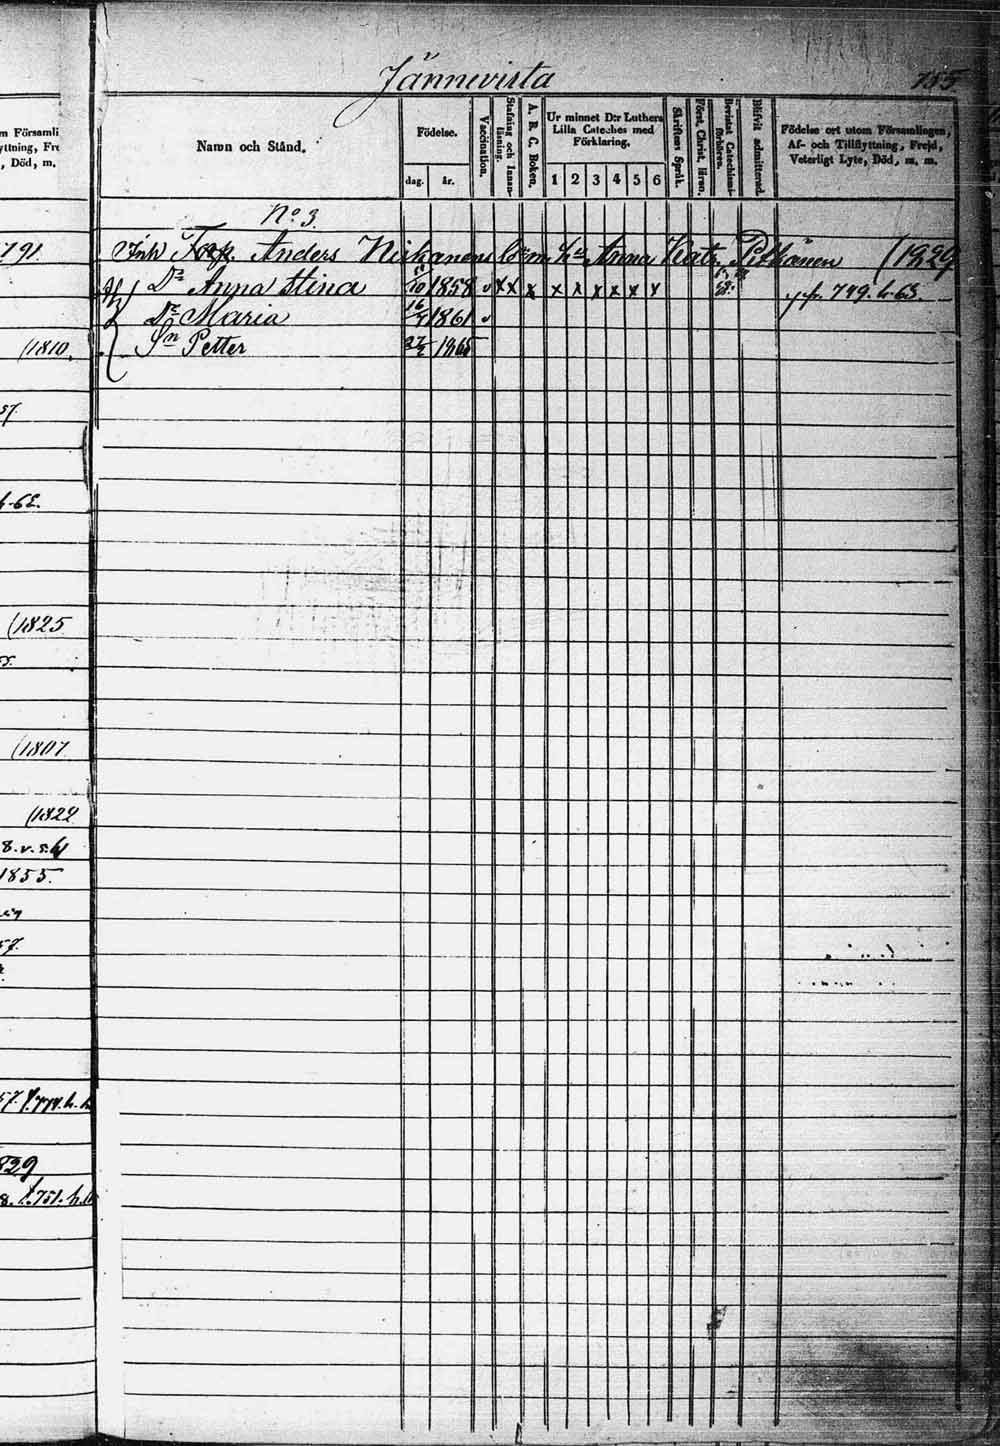 Jännevirta
155.
m Församli
yttning, Fre
, Död, m.
Namn och Stånd.
Födelse.
dag. år.
Vaccination.
Stafning och Innan-
läsning.
A. B. C. Boken.
Ur minnet D:r Luthers
Lilla Cateches med
Förklaring.
1 2 3 4 5 6
Skriftens Språk.
Först. Christ. läran.
Bevistat Catechismi-
förhören.
Blifvit admitterad.
Födelse ort utom Församlingen,
Af- och Tillflyttning, Frejd,
Veterligt Lyte, Död, m. m.
No 3.
Inh Anders Niskanens Anna Kath. Pitkänen (1829
791
Dr Anna Stina 10 1858 v x x x x x x x x x 749. h. 63.
Dr Maria 16 1861 v
Sn Petter 27 1865
(1810.
57.
h-62.
(1825
55.
(1807
(1822
8. v. s. 61
1855.
57.
57. f. 774. h.
829
8. f. 751. h.